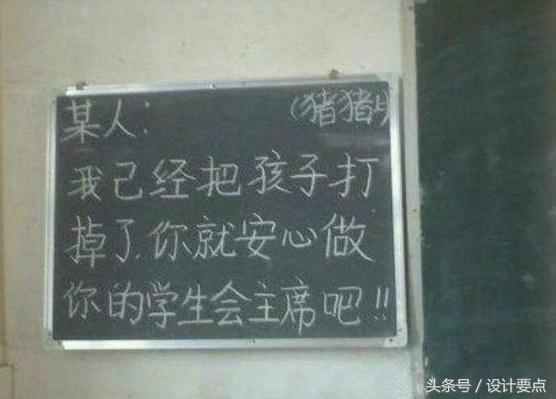 某人： (猪猪
我已经把孩子打
掉了.你就安心做
你的学生会主席吧!!
头条号 / 设计要点